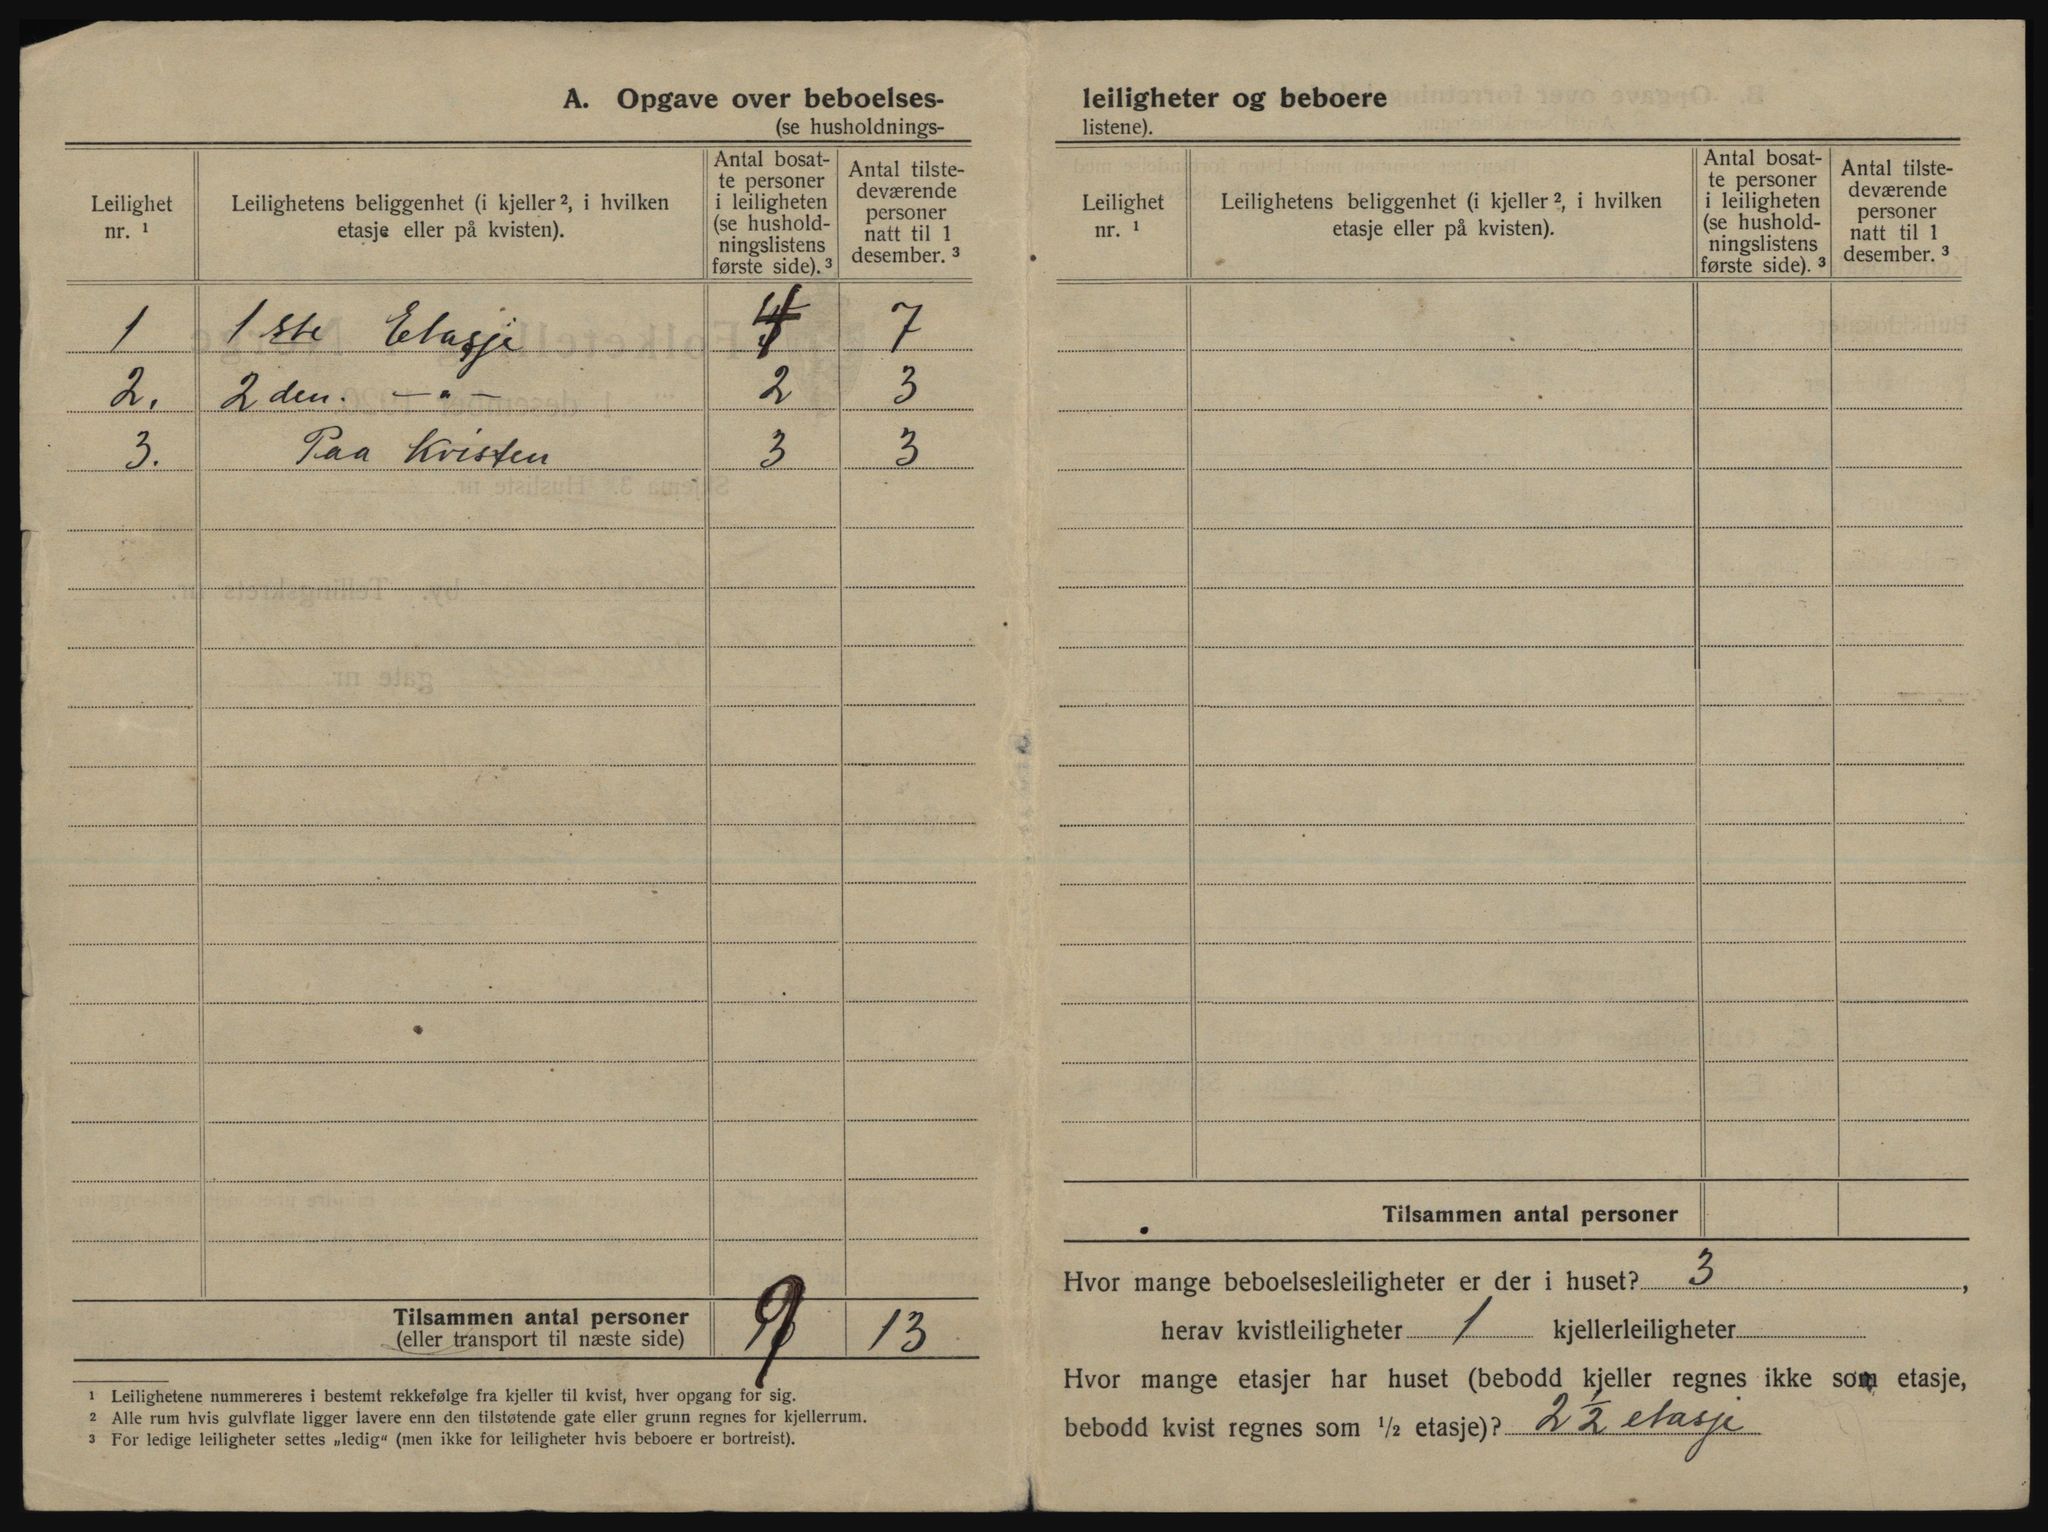 A. Opgave over beboelses-
(se husholdnings-
Leilighet nr. ¹
Leilighetens beliggenhet (i kjeller ², i hvilken etasje eller på kvisten).
Antal bosat-
te personer
i leiligheten
(se hushold-
ningslistens
første side). ³
Antal tilste-
deværende
personer
natt til 1
desember. ³
1 1ste Etasje 4 7
2. 2den. — " — 2 3
3. Paa Kvisten 3 3
Tilsammen antal personer 9 13
(eller transport til næste side)
¹ Leilighetene nummereres i bestemt rekkefølge fra kjeller til kvist, hver opgang for sig.
² Alle rum hvis gulvflate ligger lavere enn den tilstøtende gate eller grunn regnes for kjellerrum.
³ For ledige leiligheter settes „ledig“ (men ikke for leiligheter hvis beboere er bortreist).
leiligheter og beboere
listene).
Leilighet nr. ¹
Leilighetens beliggenhet (i kjeller ², i hvilken etasje eller på kvisten).
Antal bosat-
te personer
i leiligheten
(se hushold-
ningslistens
første side). ³
Antal tilste-
deværende
personer
natt til 1
desember. ³
Tilsammen antal personer
Hvor mange beboelsesleiligheter er der i huset? 3,
herav kvistleiligheter 1 kjellerleiligheter
Hvor mange etasjer har huset (bebodd kjeller regnes ikke som etasje,
bebodd kvist regnes som ½ etasje)? 2 ½ etasje